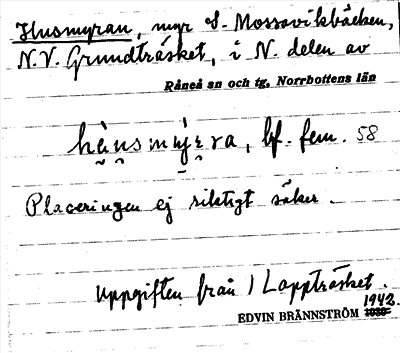 Husmyran, myr S. Mossavikbäcken,
N.V. Grundträsket, i N. delen av
Råneå sn och tg, Norrbottens län
bf. fem. 58
Placeringen ej riktigt säker.
Uppgiften från 1 Lappträsket.
EDVIN BRÄNNSTRÖM 1942.